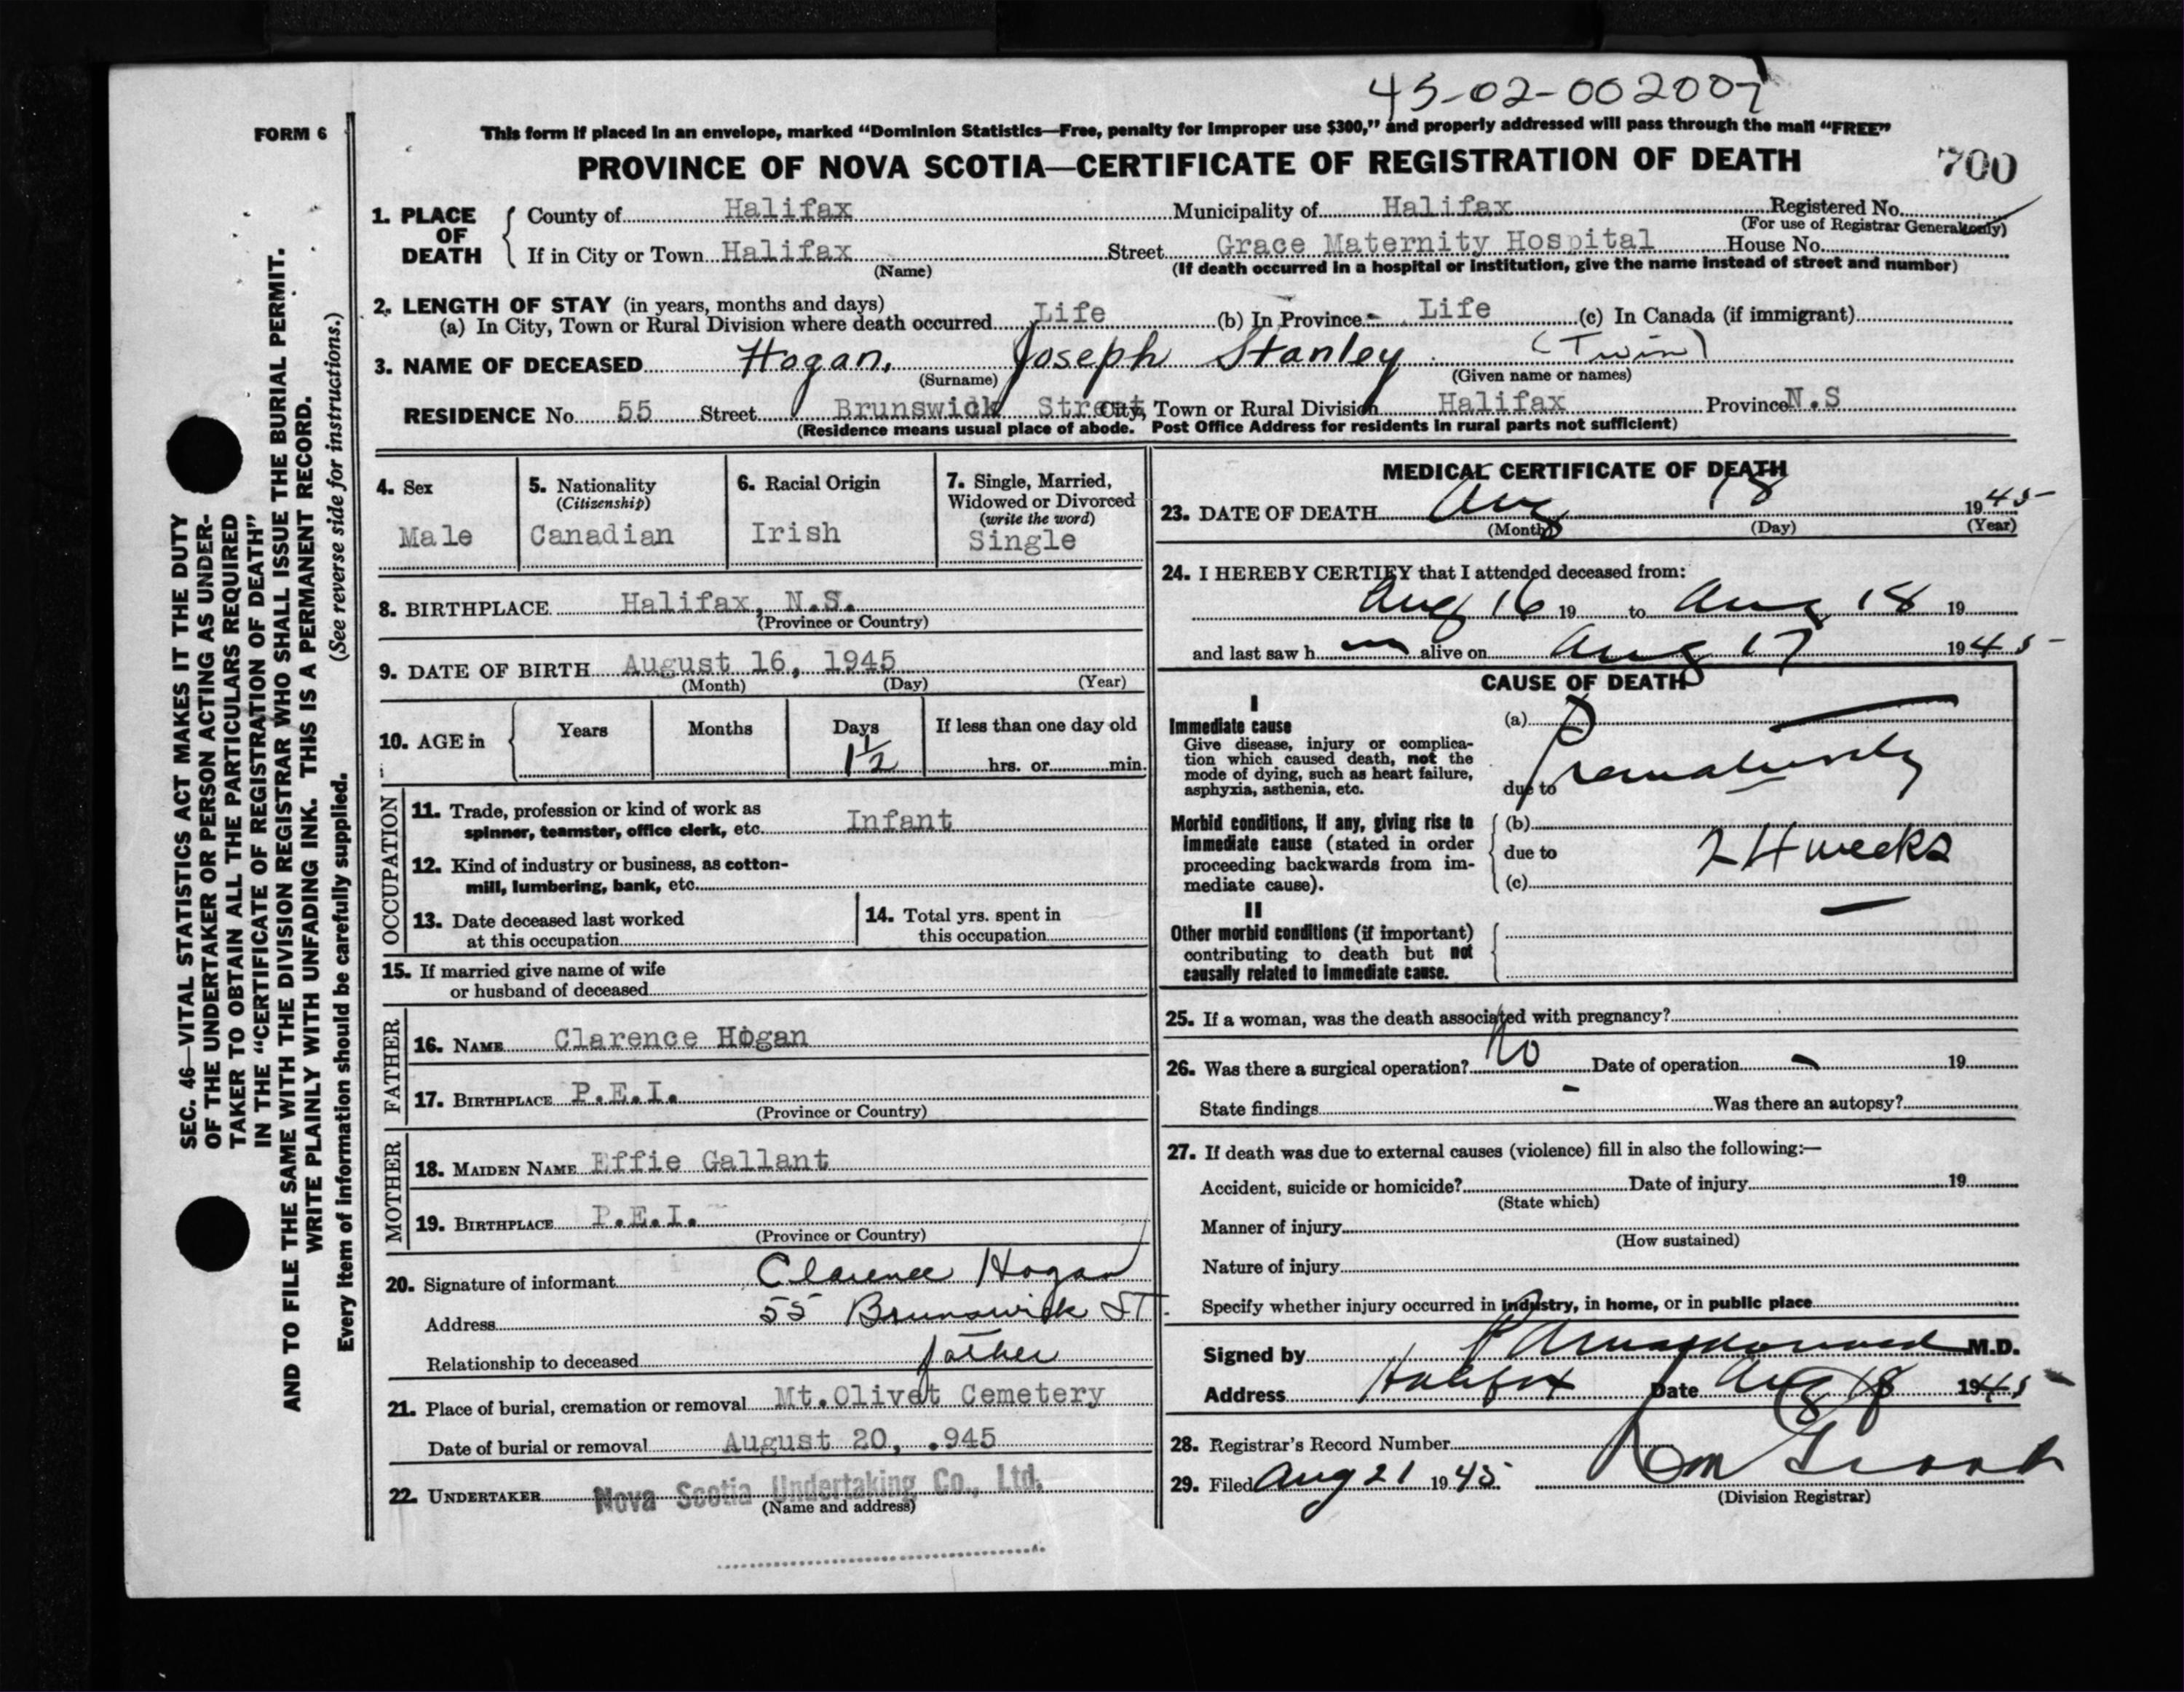 45-02-002007
FORM 6
This form if placed in an envelope, marked “Dominion Statistics—Free, penalty for improper use $300,” and properly addressed will pass through the mail “FREE”
PROVINCE OF NOVA SCOTIA—CERTIFICATE OF REGISTRATION OF DEATH 700
1. PLACE OF DEATH County of Halifax Municipality of Halifax Registered No.
(For use of Registrar General only)
If in City or Town Halifax Street Grace Maternity Hospital House No.
(Name) (If death occurred in a hospital or institution, give the name instead of street and number)
2. LENGTH OF STAY (in years, months and days)
(a) In City, Town or Rural Division where death occurred Life (b) In Province Life (c) In Canada (if immigrant)
3. NAME OF DECEASED Hogan, Joseph Stanley (Twin)
(Surname) (Given name or names)
RESIDENCE No. 55 Street Brunswick Street City, Town or Rural Division Halifax Province N.S
(Residence means usual place of abode. Post Office Address for residents in rural parts not sufficient)
4. Sex
Male
5. Nationality
(Citizenship)
Canadian
6. Racial Origin
Irish
7. Single, Married,
Widowed or Divorced
(write the word)
Single
8. BIRTHPLACE Halifax, N.S.
(Province or Country)
9. DATE OF BIRTH August 16, 1945
(Month) (Day) (Year)
10. AGE in Years Months Days If less than one day old
1½ hrs. or min.
OCCUPATION
11. Trade, profession or kind of work as
spinner, teamster, office clerk, etc. Infant
12. Kind of industry or business, as cotton-
mill, lumbering, bank, etc.
13. Date deceased last worked
at this occupation
14. Total yrs. spent in
this occupation
15. If married give name of wife
or husband of deceased
FATHER
16. NAME Clarence Hogan
17. BIRTHPLACE P.E.I.
(Province or Country)
MOTHER
18. MAIDEN NAME Effie Gallant
19. BIRTHPLACE P.E.I.
(Province or Country)
20. Signature of informant Clarence Hogan
Address 55 Brunswick ST.
Relationship to deceased father
21. Place of burial, cremation or removal Mt.Olivet Cemetery
Date of burial or removal August 20, .945
22. UNDERTAKER Nova Scotia Undertaking Co., Ltd.
(Name and address)
MEDICAL CERTIFICATE OF DEATH
23. DATE OF DEATH Aug 18 1945
(Month) (Day) (Year)
24. I HEREBY CERTIFY that I attended deceased from:
Aug 16 19 to Aug 18 19
and last saw h m alive on Aug 17 1945
CAUSE OF DEATH
I
Immediate cause
Give disease, injury or complica-
tion which caused death, not the
mode of dying, such as heart failure,
asphyxia, asthenia, etc.
(a)
Prematurity
due to
Morbid conditions, if any, giving rise to
immediate cause (stated in order
proceeding backwards from im-
mediate cause).
(b)
due to 24 weeks
(c)
II
Other morbid conditions (if important)
contributing to death but not
causally related to immediate cause.
25. If a woman, was the death associated with pregnancy?
26. Was there a surgical operation? No Date of operation - 19
State findings - Was there an autopsy?
27. If death was due to external causes (violence) fill in also the following:—
Accident, suicide or homicide? Date of injury 19
(State which)
Manner of injury
(How sustained)
Nature of injury
Specify whether injury occurred in industry, in home, or in public place
Signed by M.D.
Address Halifax Date Aug 18 1945
28. Registrar's Record Number
29. Filed Aug 21 1945
(Division Registrar)
SEC. 46—VITAL STATISTICS ACT MAKES IT THE DUTY
OF THE UNDERTAKER OR PERSON ACTING AS UNDER-
TAKER TO OBTAIN ALL THE PARTICULARS REQUIRED
IN THE “CERTIFICATE OF REGISTRATION OF DEATH”
AND TO FILE THE SAME WITH THE DIVISION REGISTRAR WHO SHALL ISSUE THE BURIAL PERMIT.
WRITE PLAINLY WITH UNFADING INK. THIS IS A PERMANENT RECORD.
Every item of information should be carefully supplied. (See reverse side for instructions.)